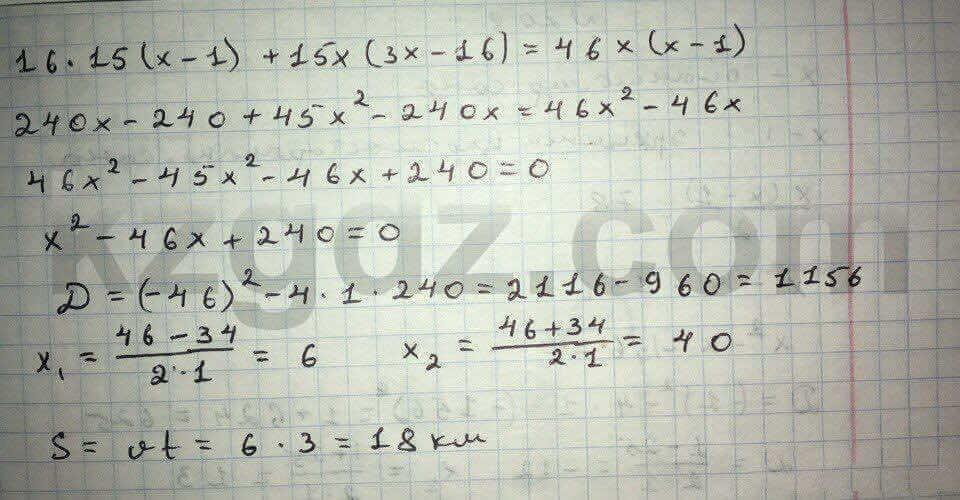 16·15(x-1)+15x(3x-16)=46x(x-1)
240x-240+45x²-240x=46x²-46x
46x²-45x²-46x+240=0
x²-46x+240=0
D=(-46)²-4·1·240=2116-960=1156
x₁=(46-34)/(2·1)=6 x₂=(46+34)/(2·1)=40
S=vt=6·3=18км
kzgdz.com